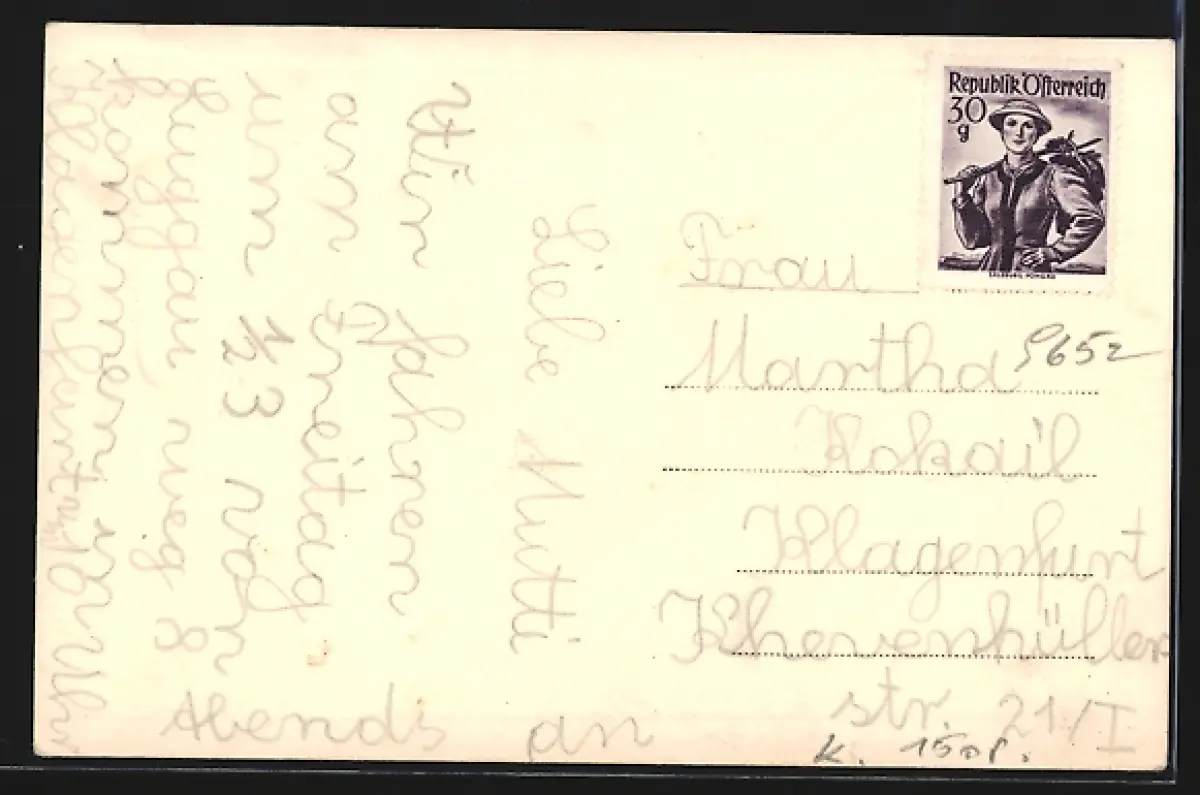 Liebe Mutti
Wir fahren
am Freitag
um 1/2 3 von
Luggau weg &
kommen in
Klagenfurt um 8 Uhr
Abends an
Republik Österreich
30
g
Frau
Martha
Kokail
Klagenfurt
Khevenhüller
str. 21/I
9652
K. 1501.